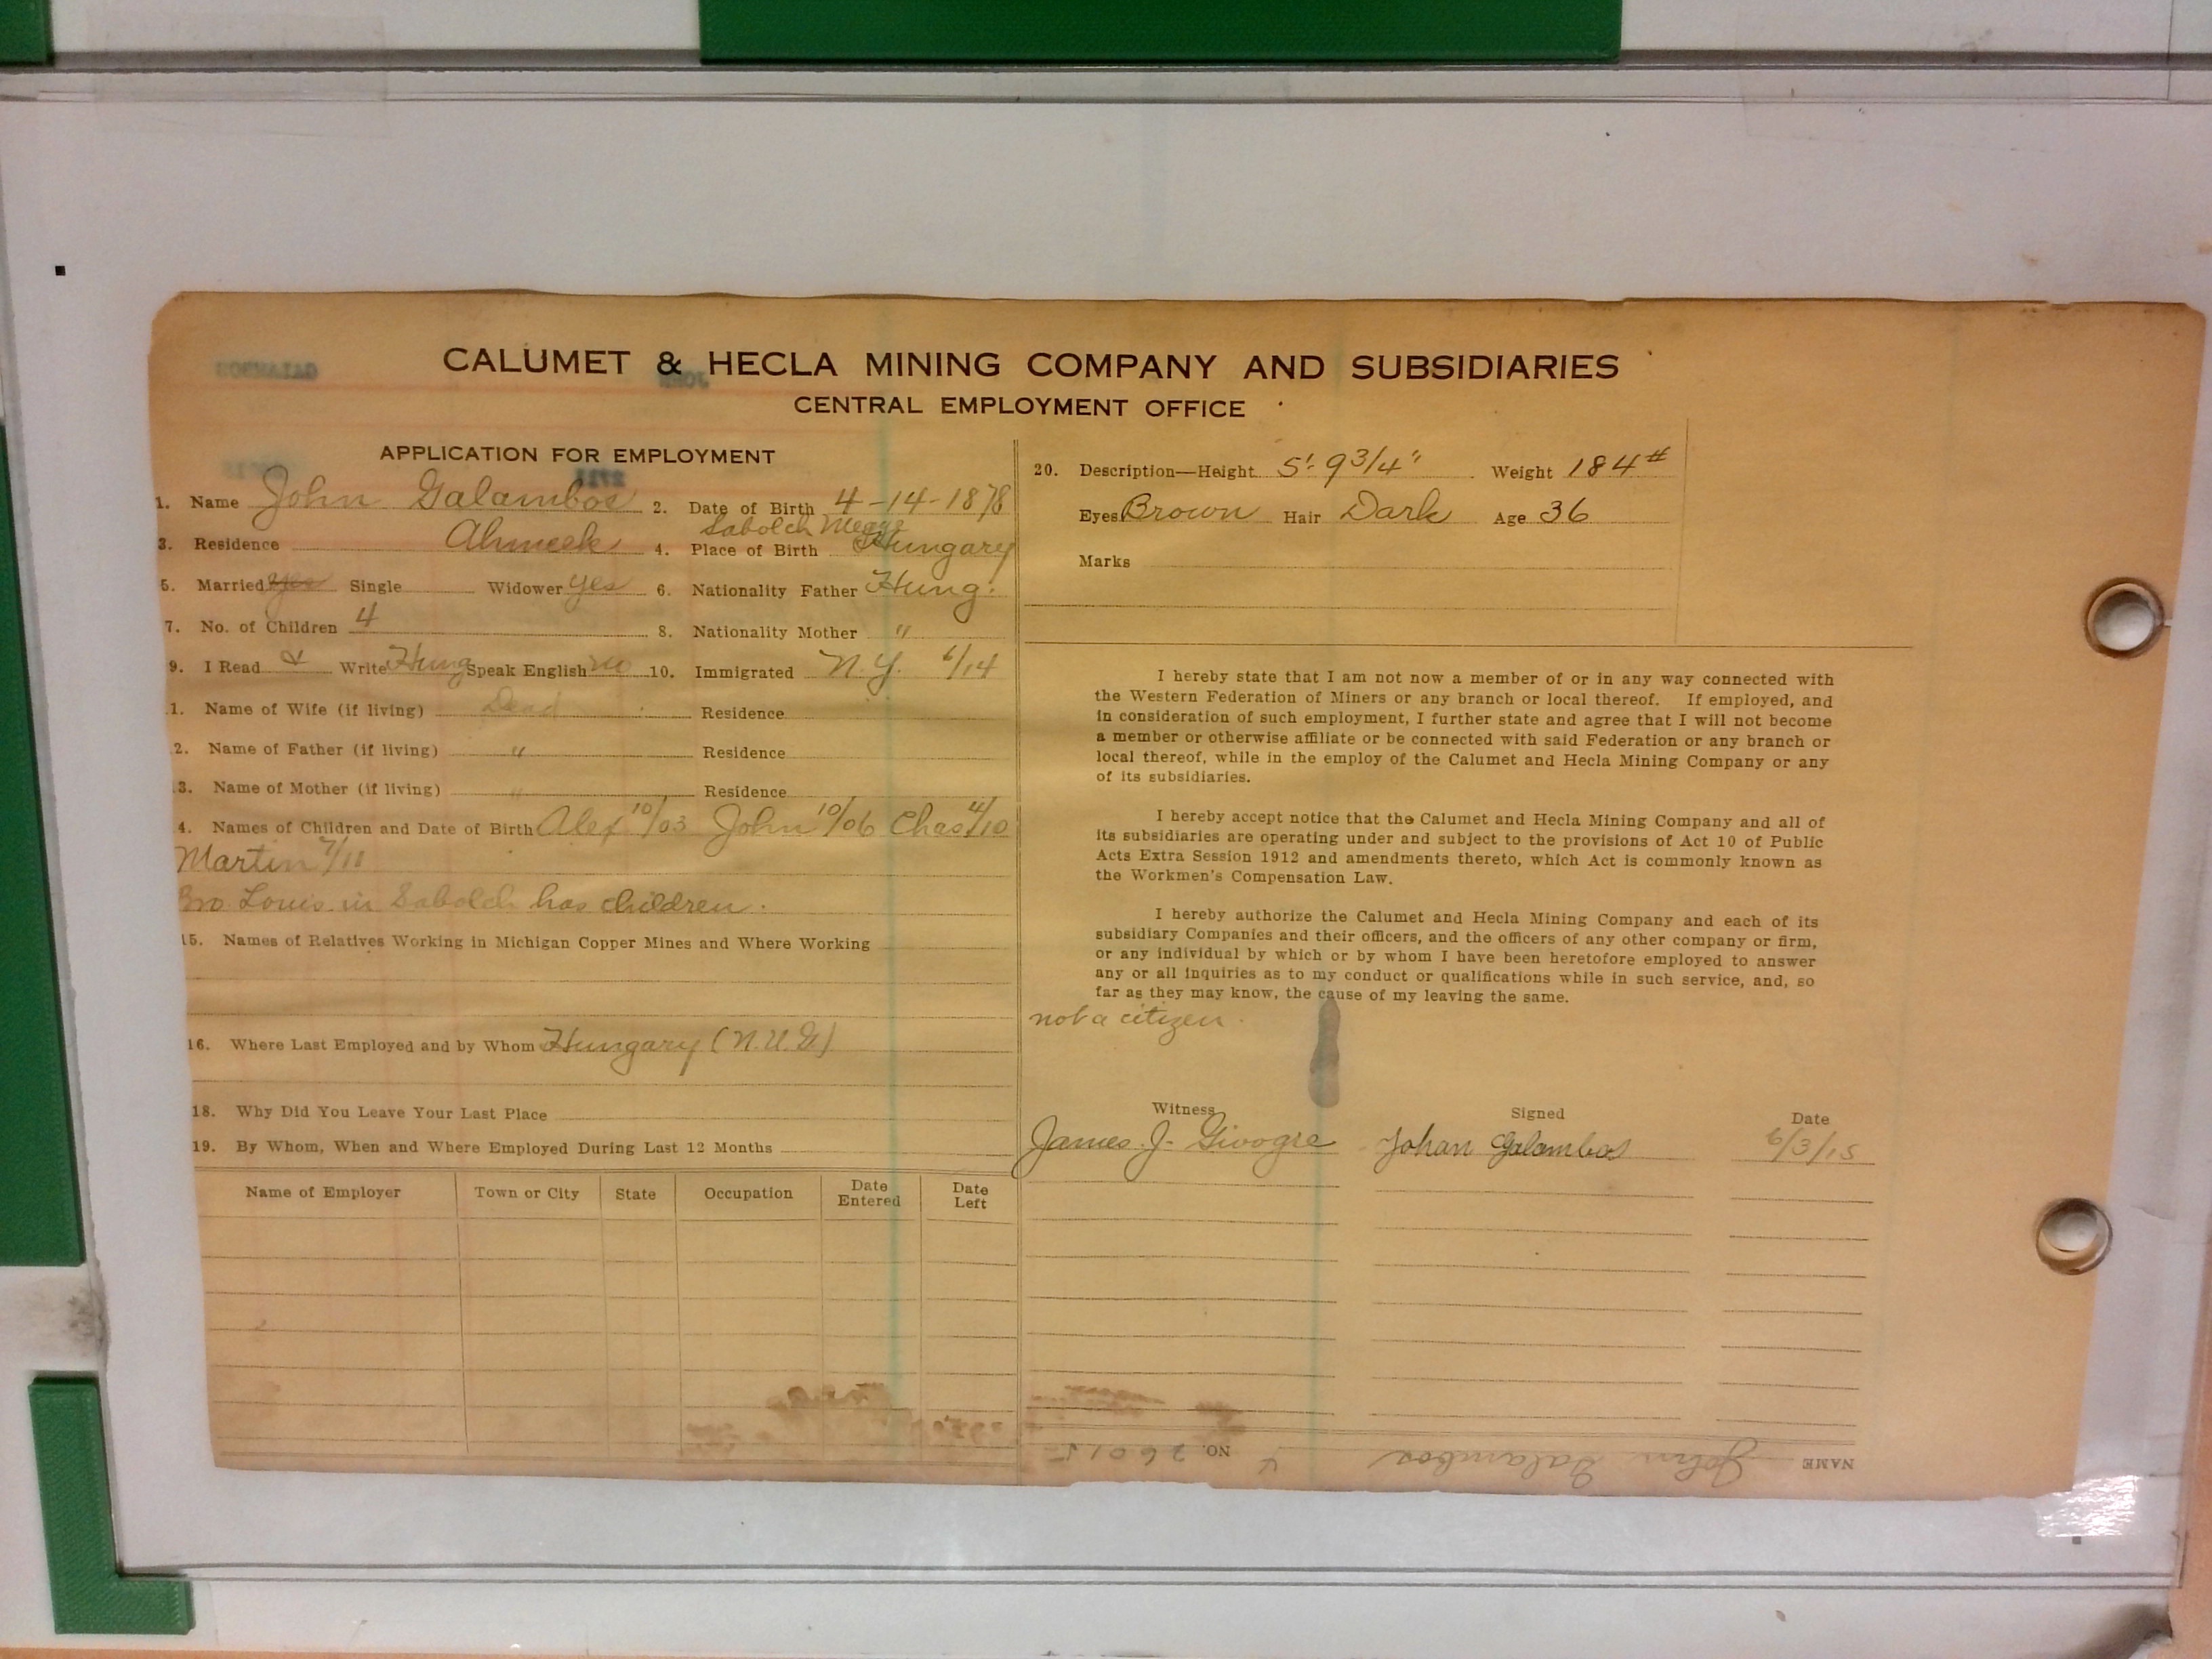 CALUMET & HECLA MINING COMPANY AND SUBSIDIARIES
CENTRAL EMPLOYMENT OFFICE
APPLICATION FOR EMPLOYMENT
1. Name John Galambos 2. Date of Birth 4-14-1878
Sabolch Megye
3. Residence Ahmeek 4. Place of Birth Hungary
5. Married yes Single Widower yes 6. Nationality Father Hung.
7. No. of Children 4 8. Nationality Mother "
9. I Read & Write Hung Speak English no 10. Immigrated N.Y. 6/14
1. Name of Wife (if living) Dead Residence
2. Name of Father (if living) " Residence
3. Name of Mother (if living) " Residence
4. Names of Children and Date of Birth Alex 10/03 John 10/06 Chas 4/10
Martin 7/11
Bro Louis in Sabolch has children.
15. Names of Relatives Working in Michigan Copper Mines and Where Working
16. Where Last Employed and by Whom Hungary (N.U.G)
18. Why Did You Leave Your Last Place
19. By Whom, When and Where Employed During Last 12 Months
Name of Employer Town or City State Occupation Date Entered Date Left
20. Description—Height 5' 9 3/4" Weight 184#
Eyes Brown Hair Dark Age 36
Marks
I hereby state that I am not now a member of or in any way connected with
the Western Federation of Miners or any branch or local thereof. If employed, and
in consideration of such employment, I further state and agree that I will not become
a member or otherwise affiliate or be connected with said Federation or any branch or
local thereof, while in the employ of the Calumet and Hecla Mining Company or any
of its subsidiaries.
I hereby accept notice that the Calumet and Hecla Mining Company and all of
its subsidiaries are operating under and subject to the provisions of Act 10 of Public
Acts Extra Session 1912 and amendments thereto, which Act is commonly known as
the Workmen's Compensation Law.
I hereby authorize the Calumet and Hecla Mining Company and each of its
subsidiary Companies and their officers, and the officers of any other company or firm,
or any individual by which or by whom I have been heretofore employed to answer
any or all inquiries as to my conduct or qualifications while in such service, and, so
far as they may know, the cause of my leaving the same.
not a citizen.
Witness Signed Date
James J. Givogre Johan Galambos 6/3/15
NAME John Galambos NO. 26015